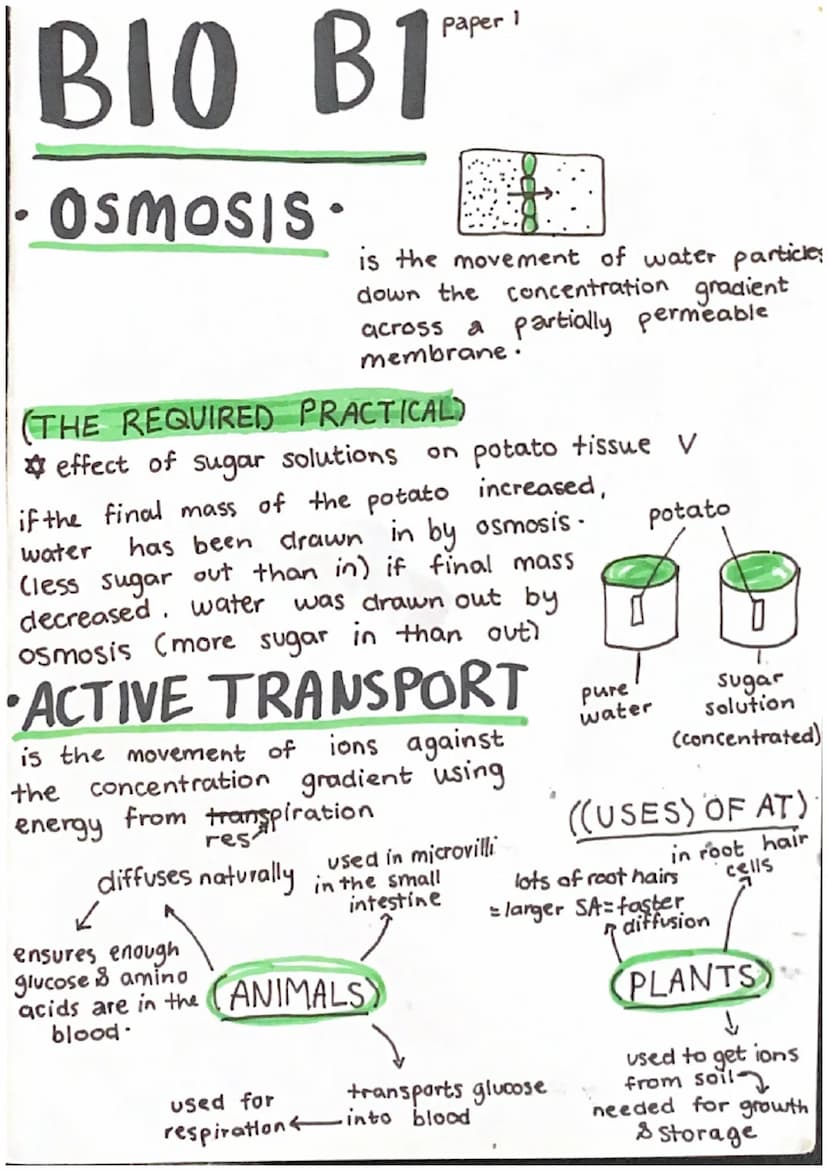 BIO B1 paper 1
· OSMOSIS ·
is the movement of water particles
down the concentration gradient
across a partially permeable
membrane.
(THE REQUIRED PRACTICAL)
effect of sugar solutions on potato tissue V
if the final mass of the potato increased,
water has been drawn in by osmosis.
(less sugar out than in) if final mass
decreased. water was drawn out by
osmosis (more sugar in than out)
potato
pure
water
sugar
solution
(concentrated)
· ACTIVE TRANSPORT
is the movement of ions against
the concentration gradient using
energy from transpiration
res
diffuses naturally
ensures enough
glucose & amino
acids are in the
blood.
used in microvilli
in the small
intestine
(ANIMALS)
transports glucose
into blood
used for
respiration
((USES) OF AT)
lots of root hairs
= larger SA = faster
diffusion
in root hair
cells
(PLANTS)
used to get ions
from soil
needed for growth
& storage